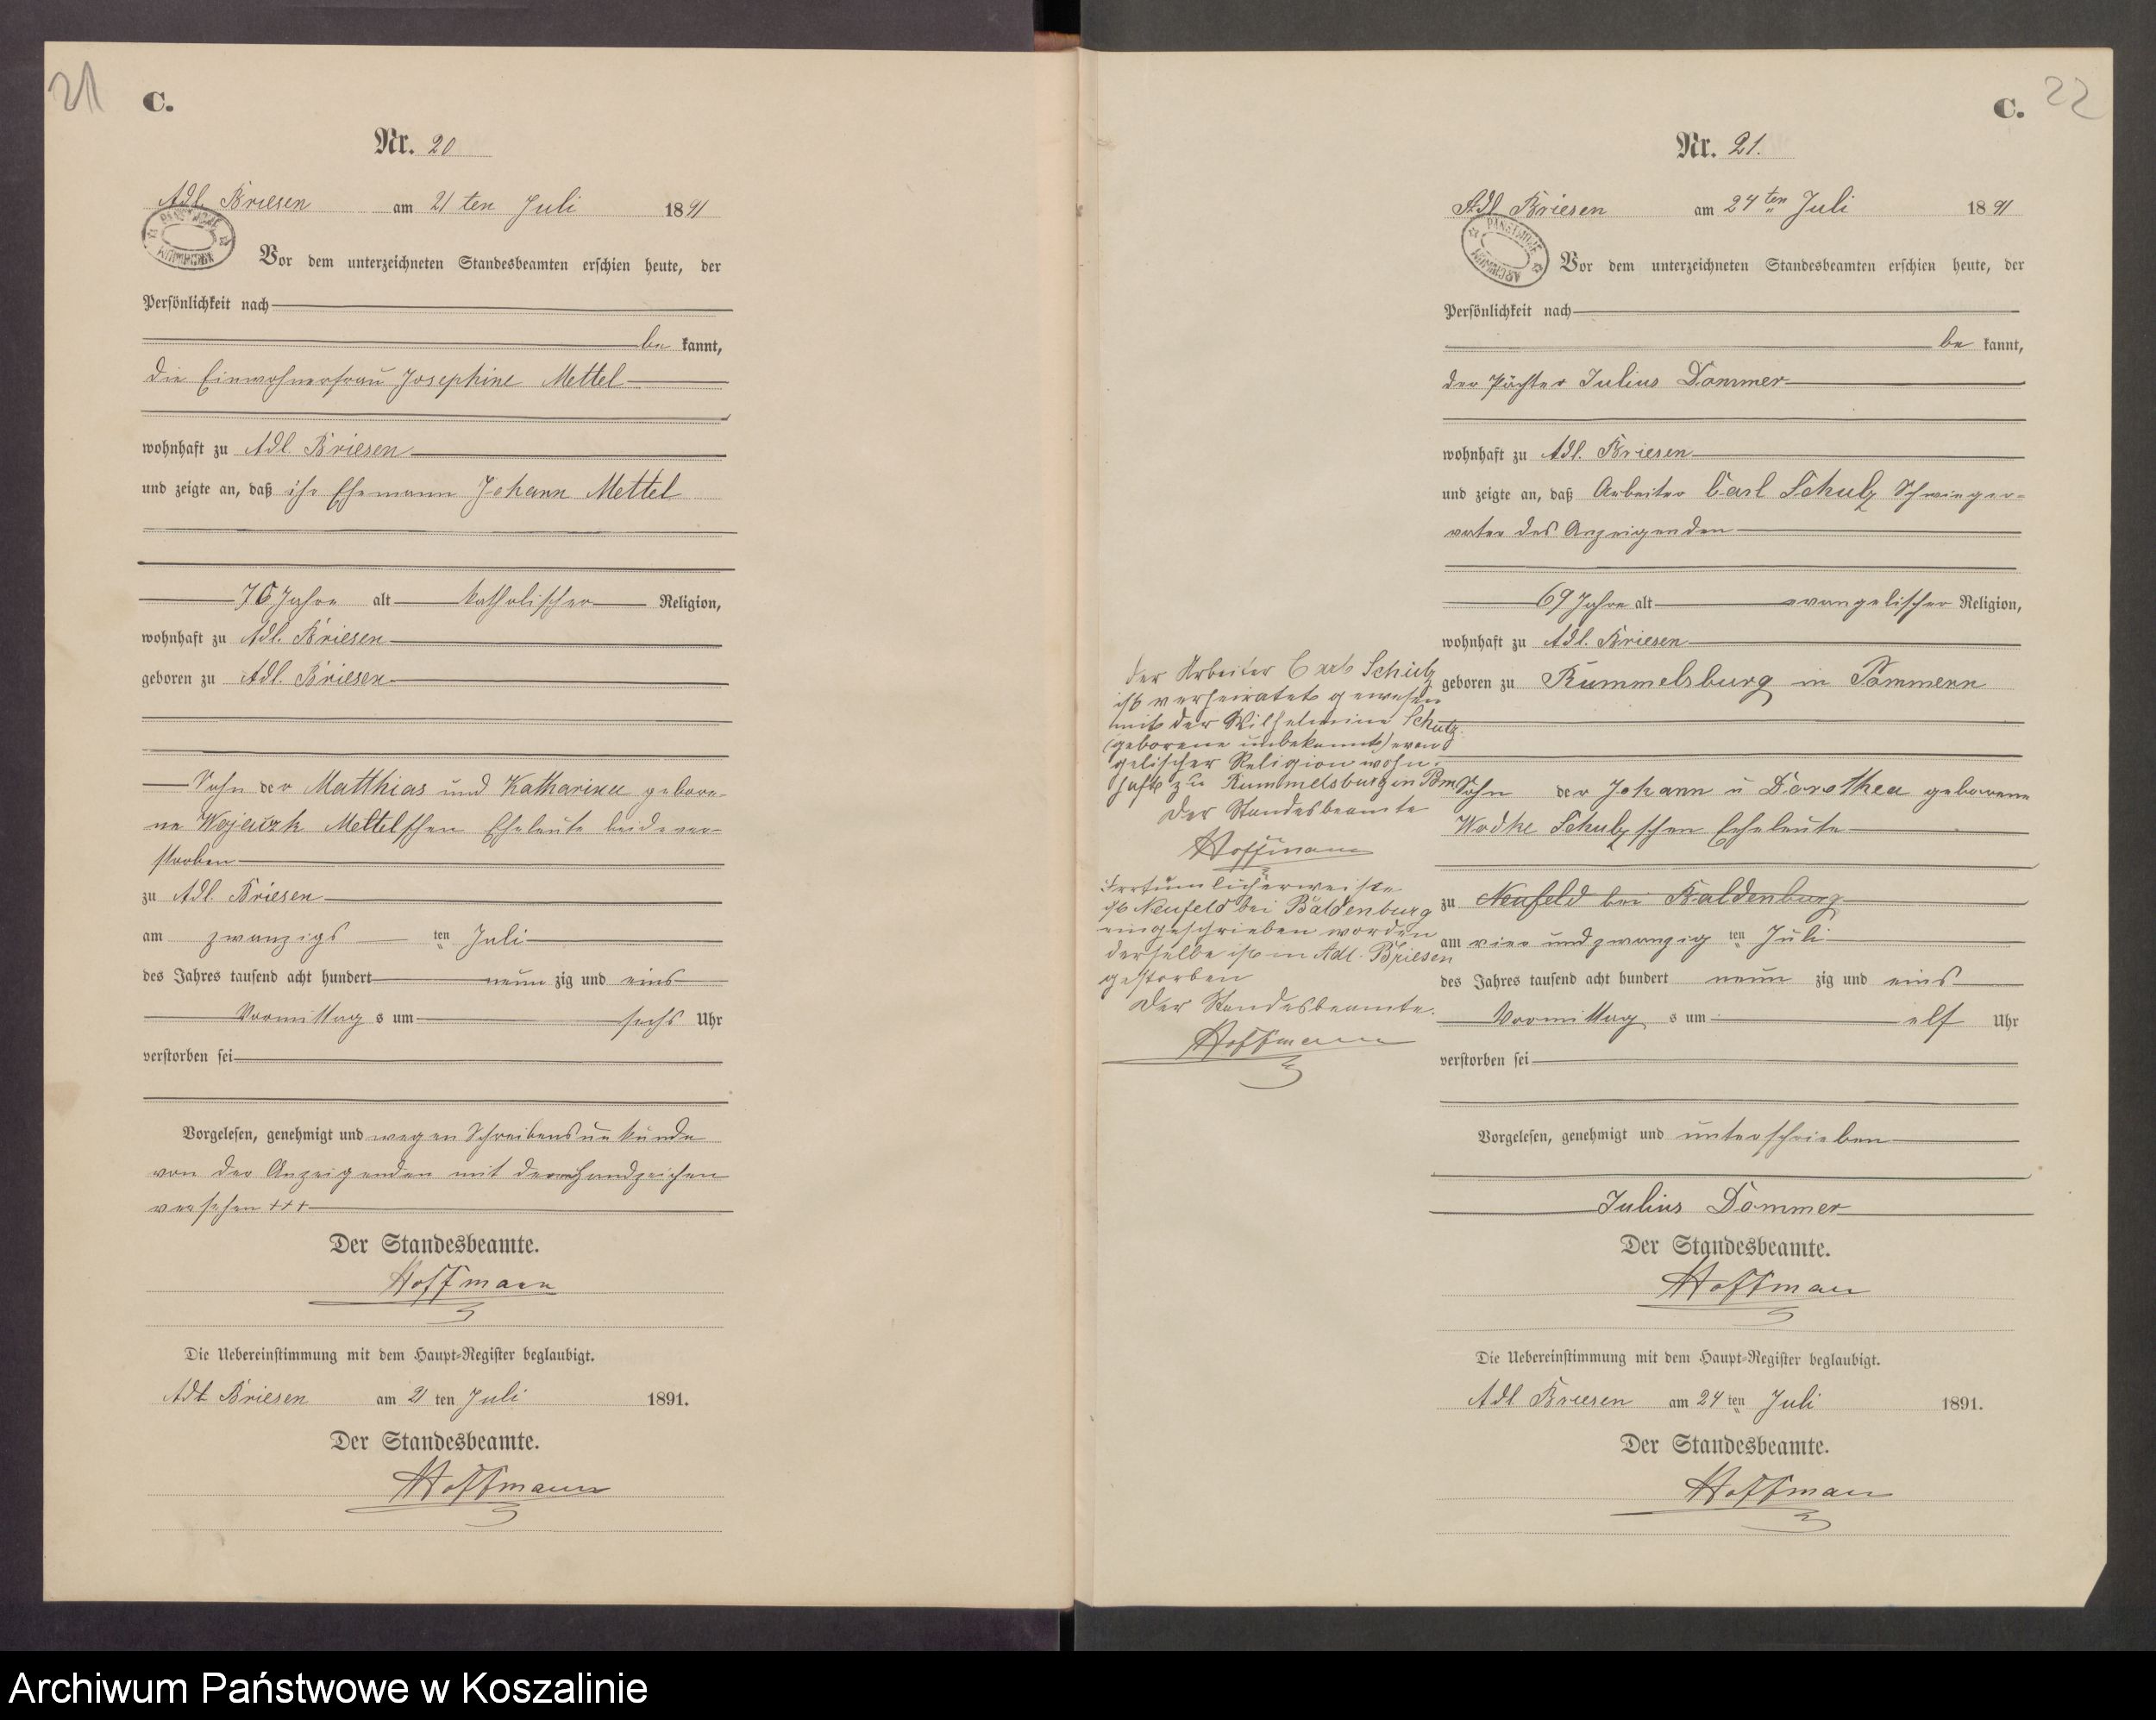 21
C.
Nr. 20
Adl. Briesen am 21 ten Juli 1891
Vor dem unterzeichneten Standesbeamten erschien heute, der
Persönlichkeit nach
be kannt,
die Einwohnerfrau Josephine Mettel
wohnhaft zu Adl. Briesen
und zeigte an, daß ihr Ehemann Johann Mettel
76 Jahre alt katholischer Religion,
wohnhaft zu Adl. Briesen
geboren zu Adl. Briesen
Sohn der Matthias und Katharina gebore-
ne Mettelschen Eheleute beide ver-
storben
zu Adl. Briesen
am zwanzigs ten Juli
des Jahres tausend acht hundert neun zig und eins
Vormittag s um sechs Uhr
verstorben sei
Vorgelesen, genehmigt und wegen Schreibensunkunde
von der Anzeigenden mit deren Handzeichen
versehen +++
Der Standesbeamte.
Hoffmann
Die Uebereinstimmung mit dem Haupt-Register beglaubigt.
Adl Briesen am 21 ten Juli 1891.
Der Standesbeamte.
Hoffmann
C. 22
Nr. 21.
Adl Briesen am 24 ten Juli 1891
PAŃSTWOWE ARCHIWUM
Vor dem unterzeichneten Standesbeamten erschien heute, der
Persönlichkeit nach
be kannt,
der Pächter Julius Dommer
wohnhaft zu Adl. Briesen
und zeigte an, daß Arbeiter Carl Schulz Schwieger-
vater des Anzeigenden
69 Jahre alt evangelischer Religion,
wohnhaft zu Adl. Briesen
geboren zu Rummelsburg in Pommern
Sohn der Johann u Dorothea geborene
Wodke Schulzschen Eheleute
zu Neufeld bei Baldenburg
am vier und zwanzig ten Juli
des Jahres tausend acht hundert neun zig und eins
Vormittag s um elf Uhr
verstorben sei
Vorgelesen, genehmigt und unterschrieben
Julius Dommer
Der Standesbeamte.
Hoffman
Die Uebereinstimmung mit dem Haupt-Register beglaubigt.
Adl Briesen am 24 ten Juli 1891.
Der Standesbeamte.
Hoffman
Der Arbeiter Carl Schulz
ist verheiratet gewesen
mit der Wilhelmine Schulz
(geborene unbekannt) evan
gelischer Religion wohn-
haft zu Rummelsburg in Pom
Der Standesbeamte
Hoffmann
Irrtümlicherweise
ist Neufeld bei Baldenburg
eingeschrieben worden
derselbe ist in Adl. Briesen
gestorben
Der Standesbeamte.
Hoffmann
Archiwum Państwowe w Koszalinie